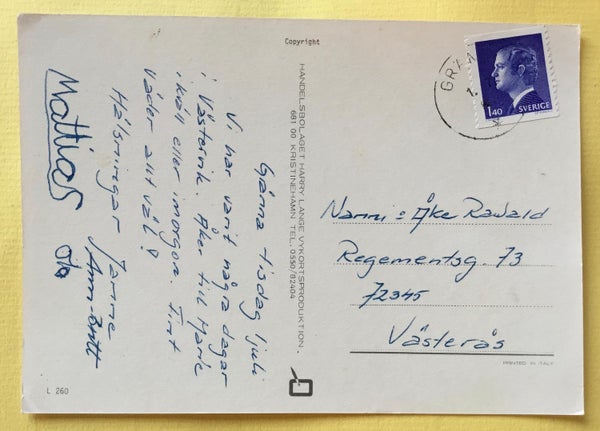 Copyright
Gränna tisdag 1 juli
Vi har varit några dagar
i Västervik. Åker till Mark
ikväll eller imorgon. Fint
väder allt väl!
Hälsningar Janne
Ann-Britt
Mattias
L 260
HANDELSBOLAGET HARRY LANGE VYKORTSPRODUKTION.
681 00 KRISTINEHAMN TEL. 0550/82404
GRÄN
1.40 SVERIGE
Nanni o Åke Rawald
Regementsg. 73
72345
Västerås
PRINTED IN ITALY